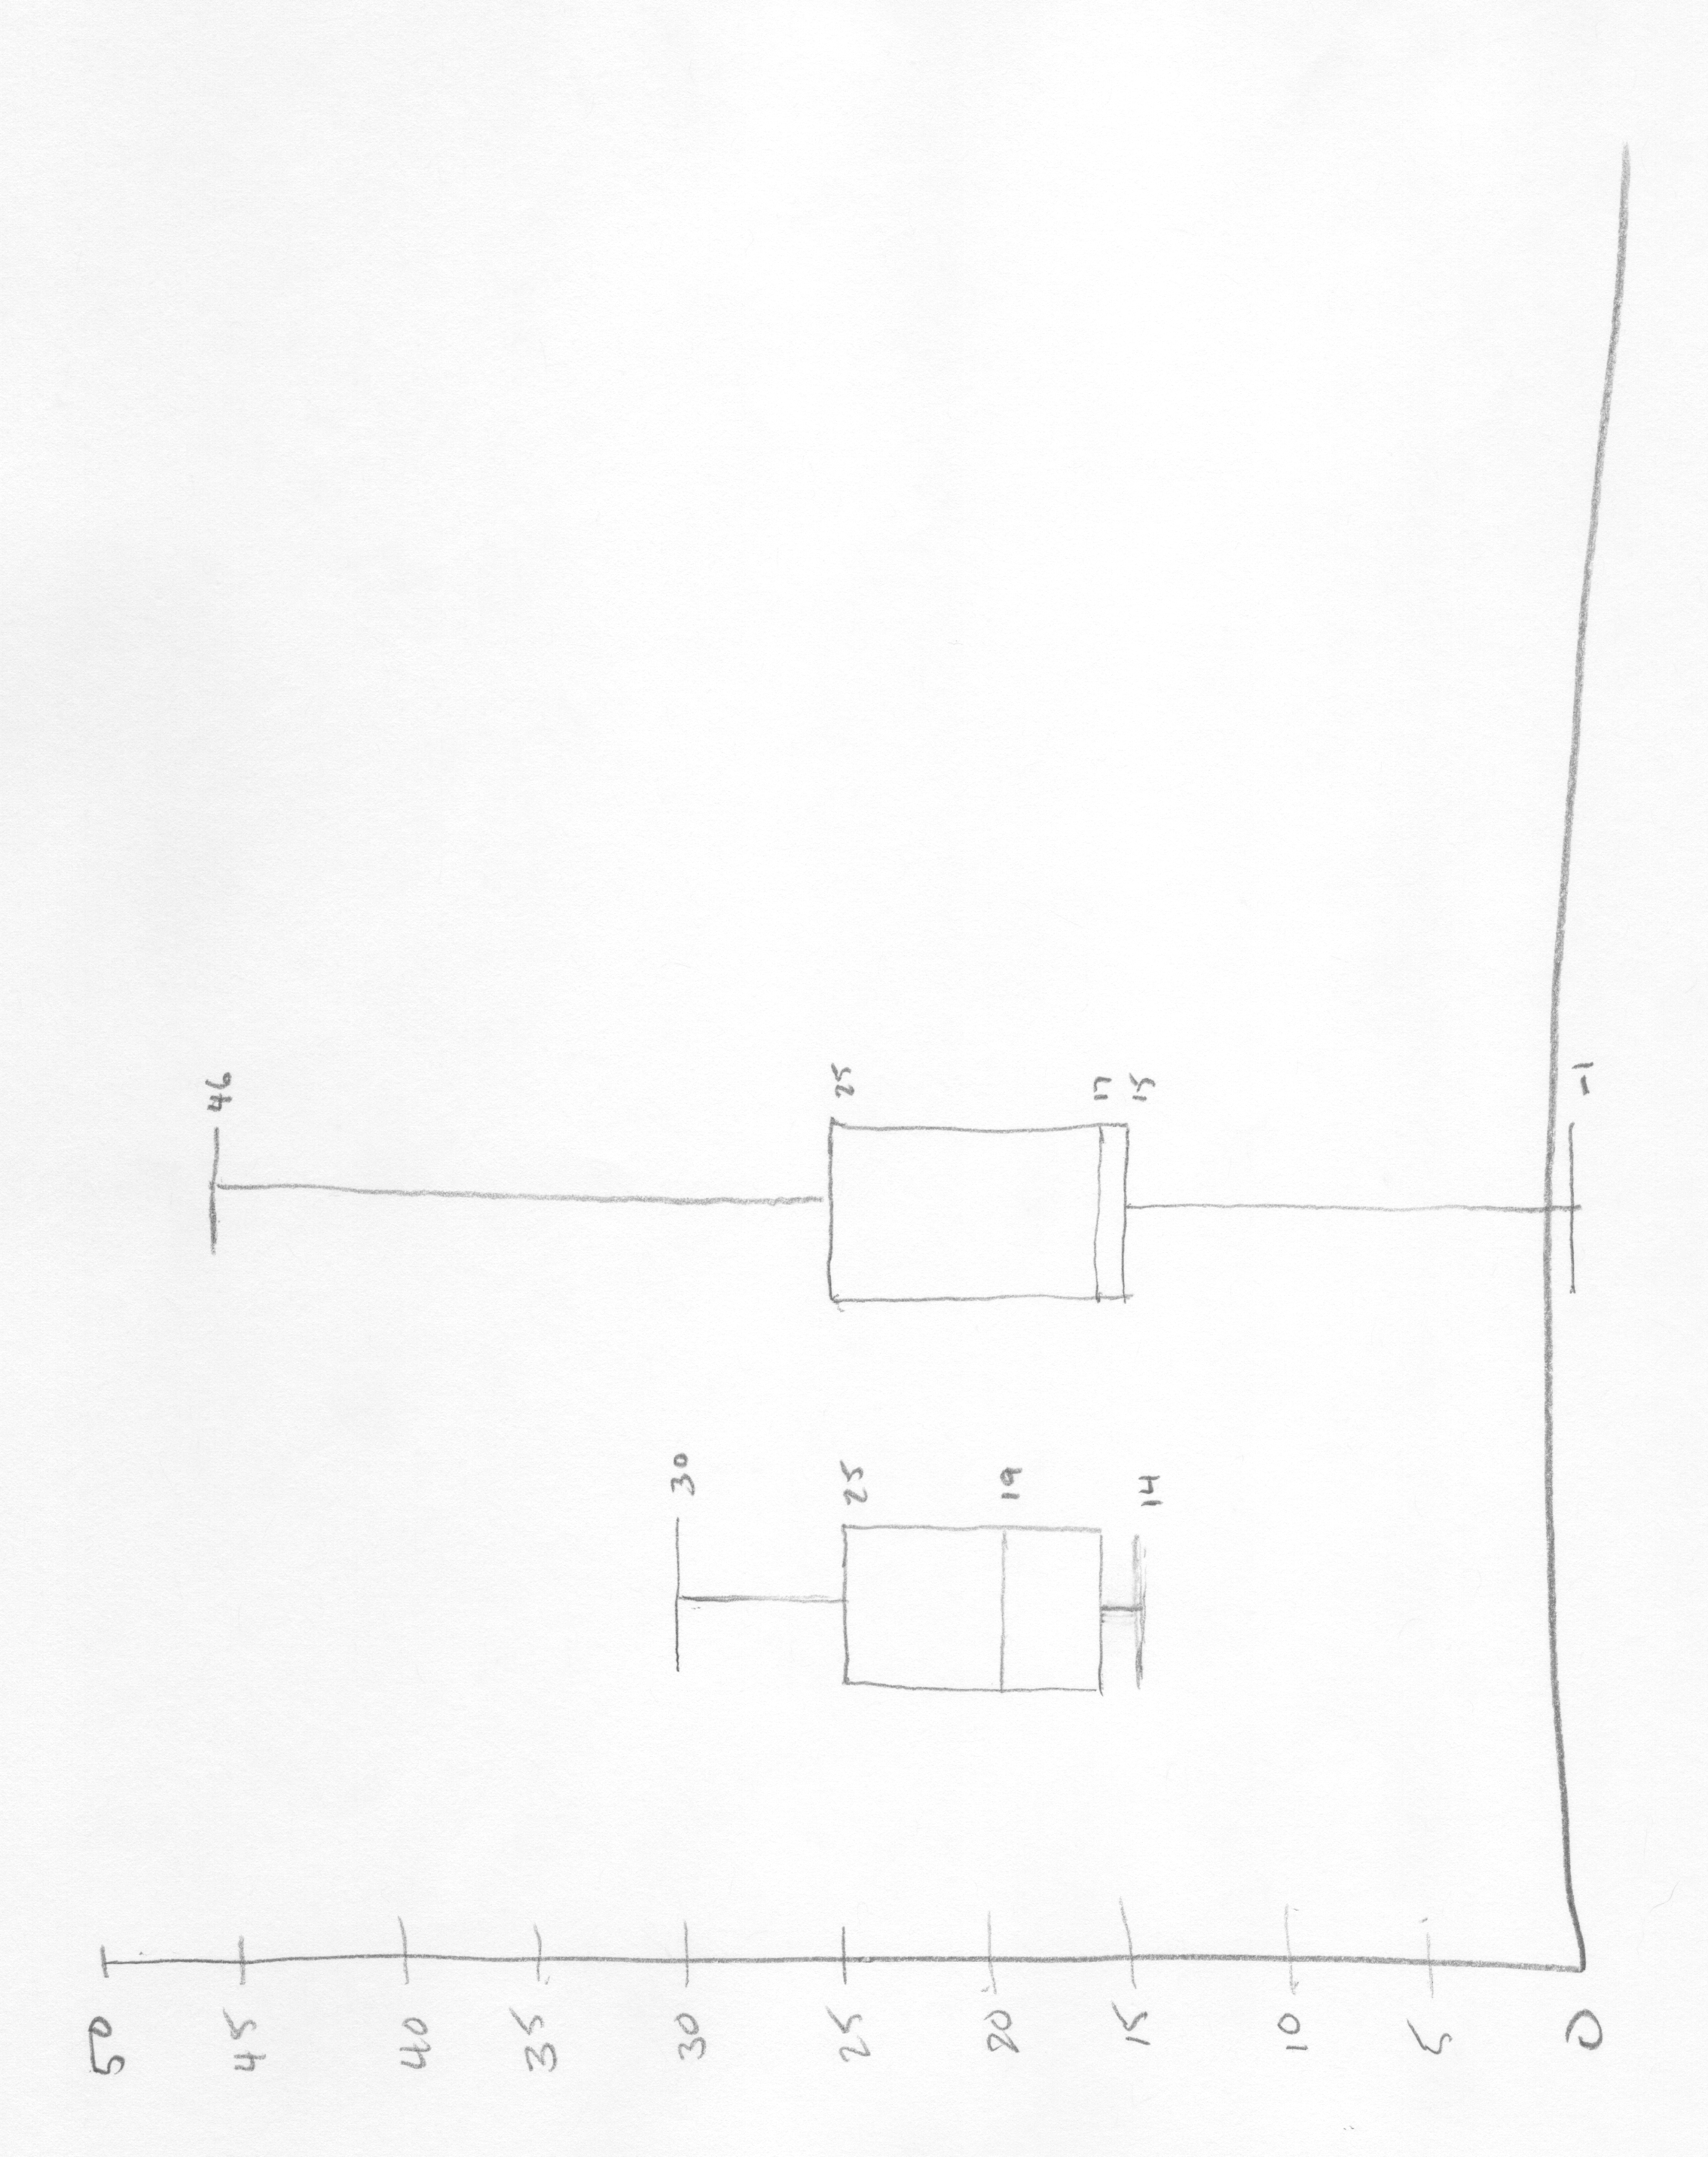 50
45
40
35
30
25
20
15
10
5
0
30
25
19
14
46
25
17
15
-1